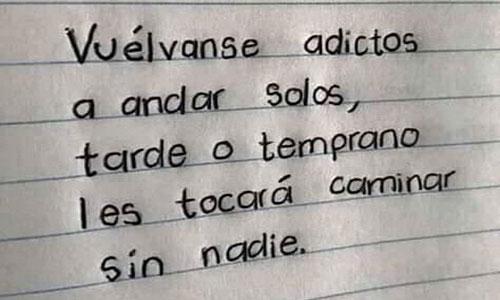 Vuélvanse adictos
a andar solos,
tarde o temprano
les tocará caminar
sin nadie.